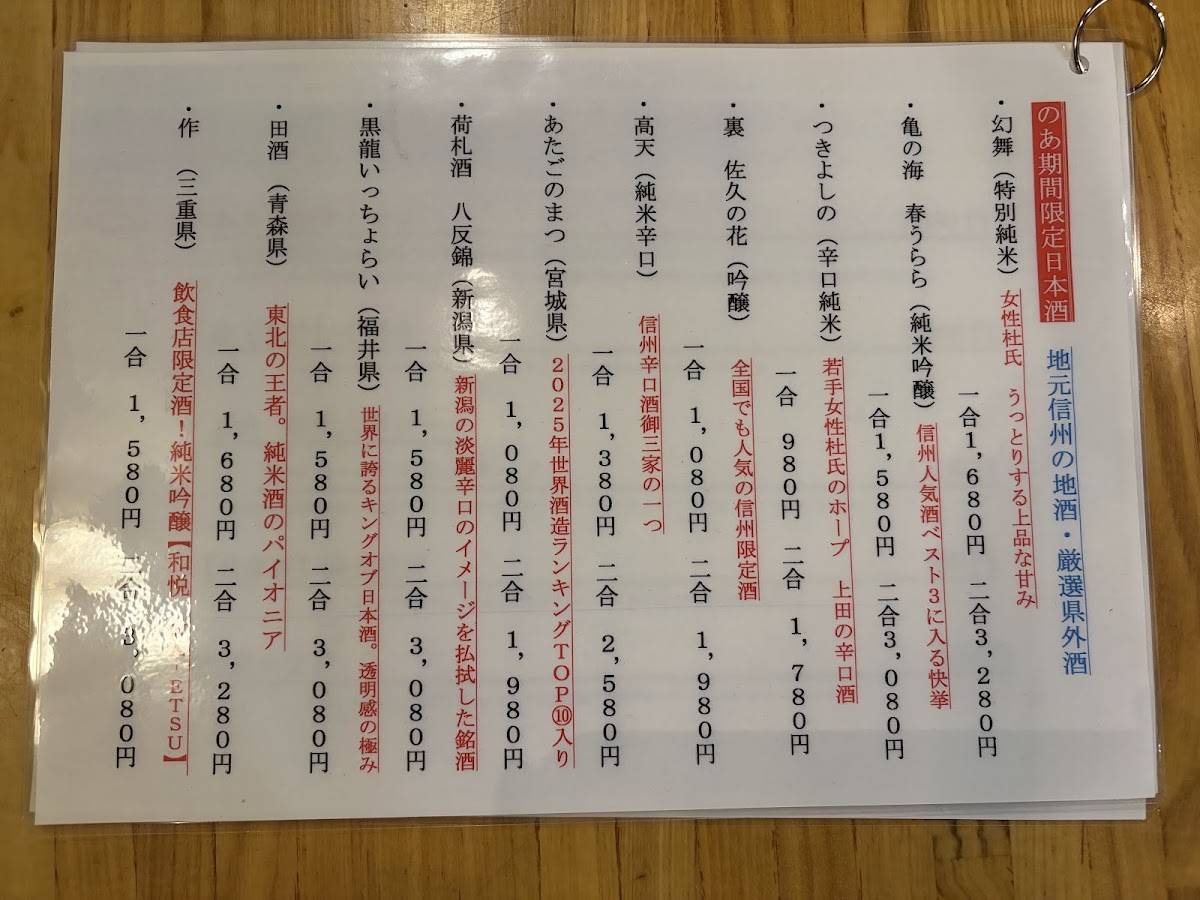 のあ期間限定日本酒　地元信州の地酒・厳選県外酒
・幻舞（特別純米）女性杜氏　うっとりする上品な甘み
一合1,680円　二合3,280円
・亀の海　春うらら（純米吟醸）信州人気酒ベスト3に入る快挙
一合1,580円　二合3,080円
・つきよしの（辛口純米）若手女性杜氏のホープ　上田の辛口酒
一合　980円　二合　1,780円
・裏　佐久の花（吟醸）　全国でも人気の信州限定酒
一合　1,080円　二合　1,980円
・高天（純米辛口）　信州辛口酒御三家の一つ
一合　1,380円　二合　2,580円
・あたごのまつ（宮城県）2025年世界酒造ランキングTOP⑩入り
一合　1,080円　二合　1,980円
・荷札酒　八反錦（新潟県）新潟の淡麗辛口のイメージを払拭した銘酒
一合　1,580円　二合　3,080円
・黒龍いっちょらい（福井県）世界に誇るキングオブ日本酒。透明感の極み
一合　1,580円　二合　3,080円
・田酒　（青森県）　東北の王者。純米酒のパイオニア
一合　1,680円　二合　3,280円
・作　（三重県）　飲食店限定酒！純米吟醸【和悦　-ETSU】
一合　1,580円　二合　3,080円